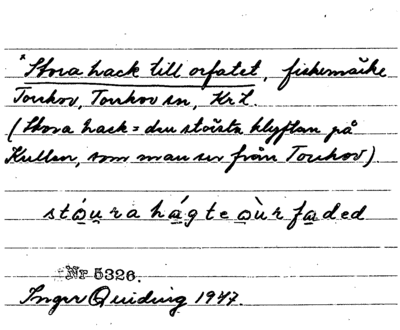 *Stora hack till orfatet, fiskemärke
Torekov, Torekov sn, Kr.l.
(Stora hack = den största klyftan på
Kullen, som man ser från Torekov)
stóu̱ra há̱gte o̱ùr fa̱ded
Nr 5326.
Inger Quiding 1947.